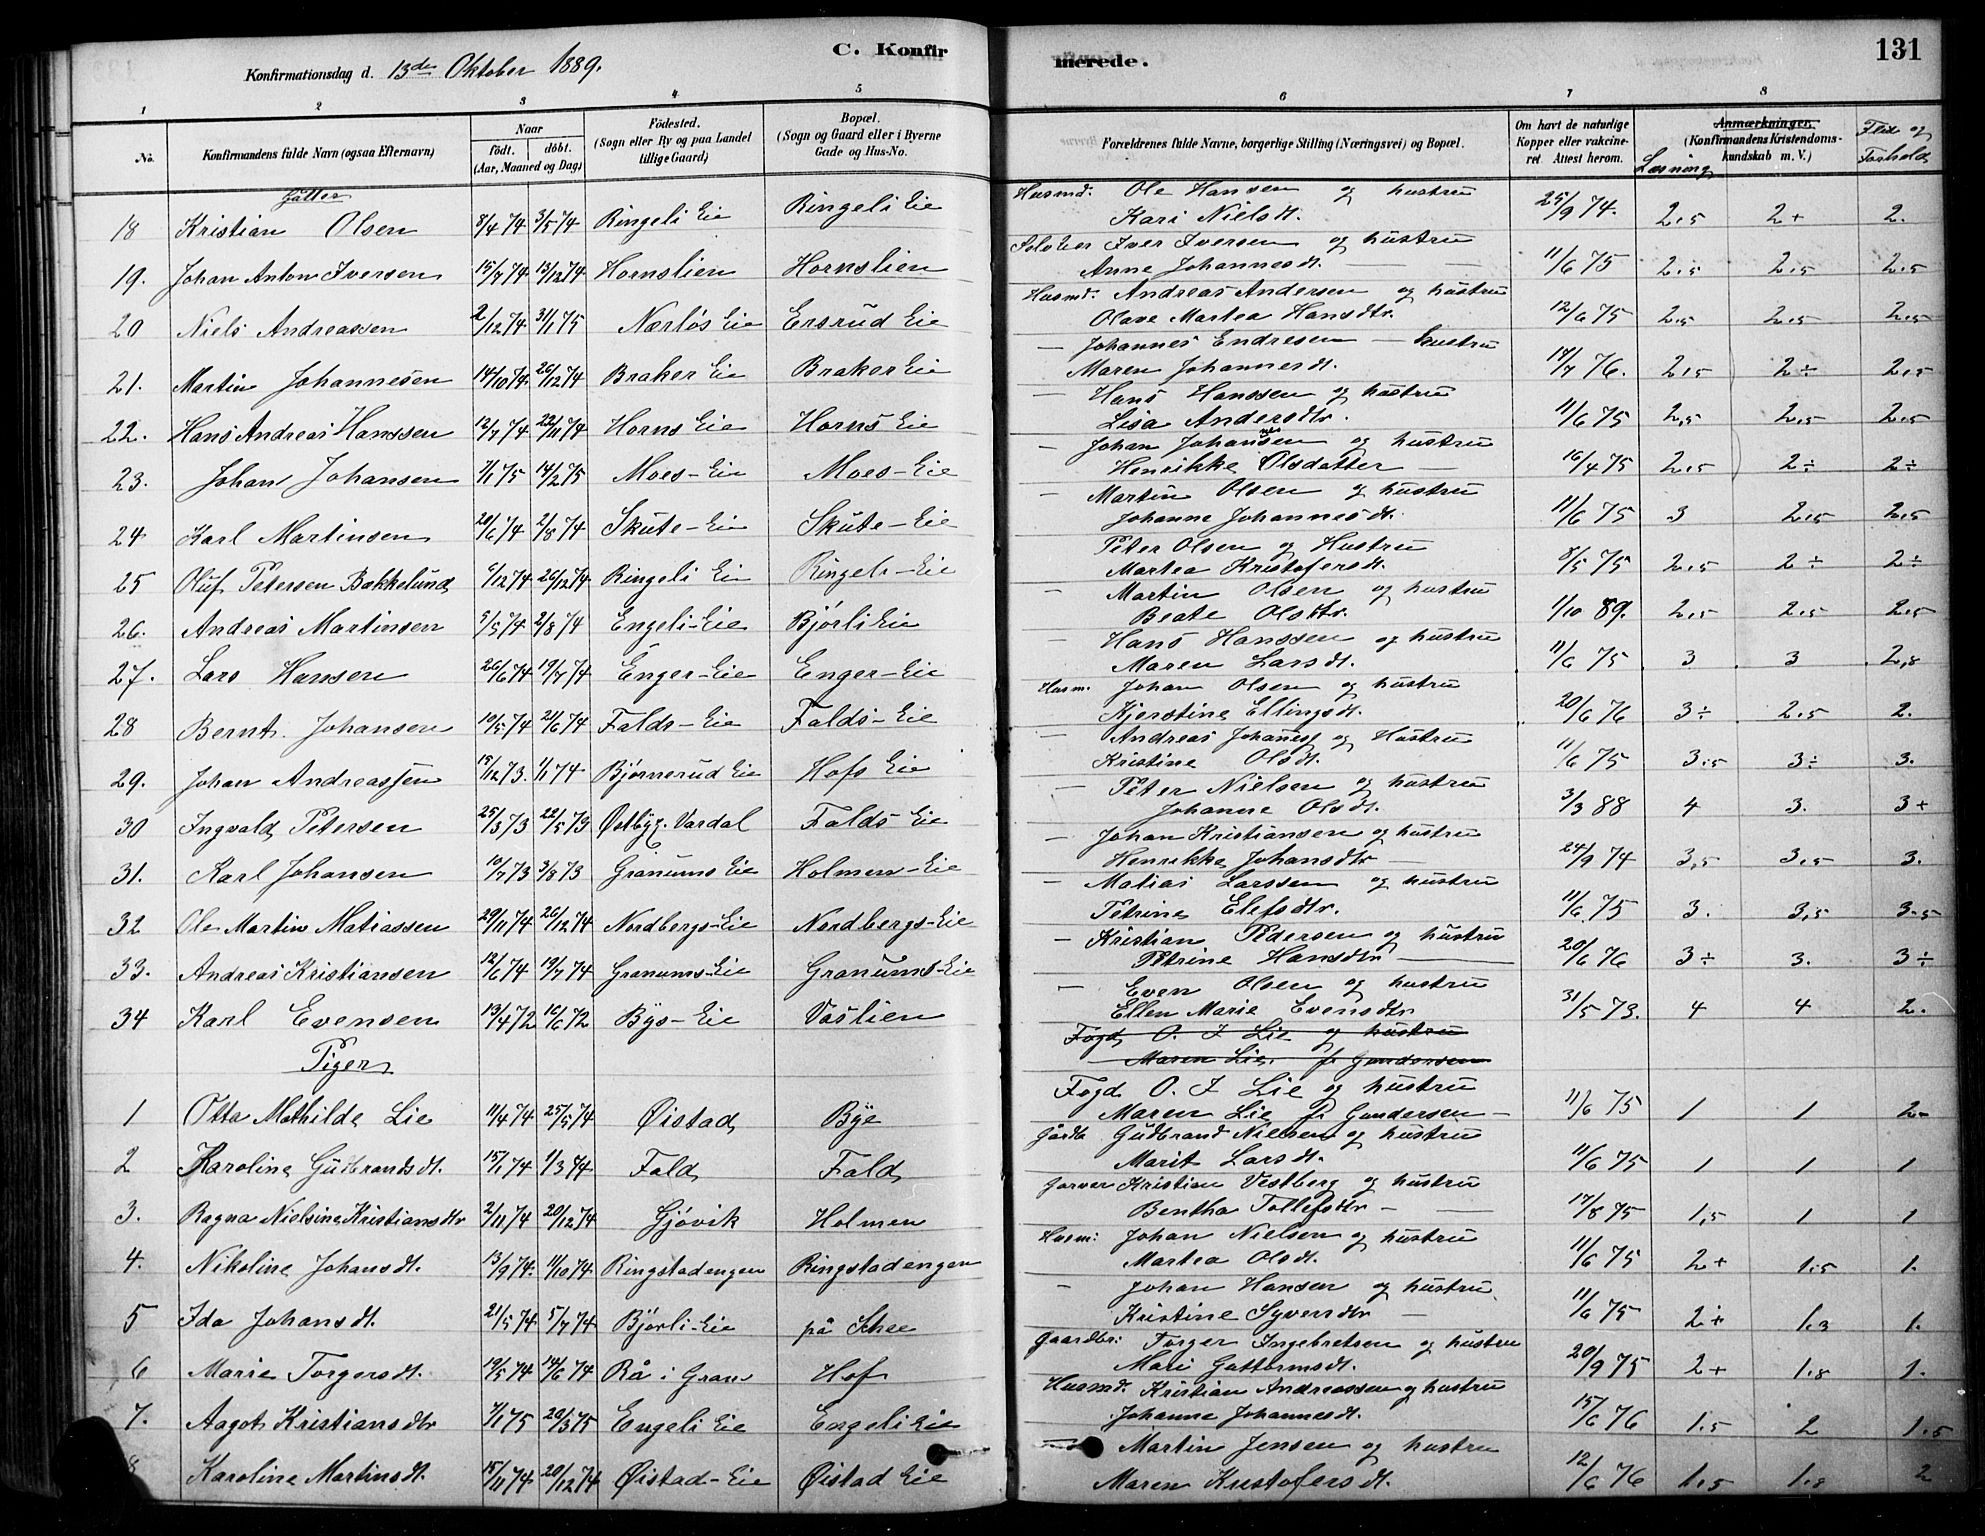 Konfirmationsdag d. 13de Oktober 1889.
C. Konfirmerede.
131
1 2 3 4 5 6 7 8
No. Konfirmandens fulde Navn (ogsaa Efternavn) Naar født. døbt. (Aar, Maaned og Dag) Fødested. (Sogn eller By og paa Landet tillige Gaard) Bopæl. (Sogn og Gaard eller i Byerne Gade og Hus-No. Forældrenes fulde Navne, borgerlige Stilling (Næringsvei) og Bopæl. Om havt de naturlige Kopper eller vakcineret Attest herom. Anmærkninger. (Konfirmandens Kristendomskundskab m. V.) Læsning Flid og Forhold
Gutter
18 Kristian Olsen 8/4 74 3/5 74 Ringeli Eie Ringeli Eie Husmd. Ole Hansen og hustru Kari Nielsdt. 25/9 74. 2,5 2+ 2.
19. Johan Anton Iversen 15/7 74 13/12 74 Hornslien Hornslien Selveier Iver Iversen og hustru Anne Johannesdt. 11/6 75 2,5 2,5 2,5
20 Niels Andreassen 2/12 74 31/1 75 Nærløs Eie Ersrud Eie Husmd. Andreas Andersen og hustru Olave Martea Hansdtr. 12/6 75 2,5 2,5 2,5
21. Martin Johannesen 14/10 74. 26/12 74 Braker Eie Braker Eie — Johannes Endresen — hustru Maren Johannesdt. 14/7 76. 2,5 2÷ 2,5
22. Hans Andreas Hanssen 12/7 74 22/11 74 Horns Eie Horns Eie — Hans Hanssen og hustru Lisa Andersdtr. 11/6 75 2,5 2,5 2,5
23. Johan Johansen 7/1 75 14/2 75 Moes-Eie Moes-Eie — Johan Johansen og hustru Henrikke Olsdatter — 16/4 75 2,5 2÷ 2÷
24 Karl Martinsen 20/6 74 2/8 74 Skute-Eie Skute-Eie — Martin Olsen og hustru Johanne Johannesdt. 11/6 75 3 2,5 2,5
25 Oluf Petersen Bakkelund 9/12 74 26/12 74 Ringeli Eie Ringeli-Eie Peter Olsen og Hustru Martea Kristofersdt. 8/5 75 2,5 2÷ 2÷
26. Andreas Martinsen 5/5 74 2/8 74 Engeli-Eie Bjørli Eie — Martin Olsen og hustru Beate Olsdtr. 1/10 89. 2,5 2,5 2,5
27. Lars Hansen 26/6 74 19/7 74 Enger-Eie Enger-Eie — Hans Hanssen og hustru Maren Larsdt. 11/6 75 3 3 2,8
28 Bernt. Johansen 10/5 74 21/6 74 Falds-Eie Falds-Eie Husm. Johan Olsen og hustru Kjerstine Ellingsdt. 20/6 76 3÷ 2,5 2.
29. Johan Andreassen 15/12 73. 1/1 74 Bjørnerud Eie Hofs Eie — Andreas Johannes og Hustru Kristine Olsdt. 11/6 75 3,5 3÷ 3.
30 Ingvald Petersen 25/3 73 22/5 73 Østbyg. Vardal Falds-Eie — Peter Nielsen og hustru Johanne Olsdt. 3/3 88 4 3. 3+
31. Karl Johansen 10/7 73 3/8 73 Granums Eie Holmen-Eie — Johan Kristiansen og hustru Henrikke Johansdtr — 24/9 74 3,5 3,5 3.
32 Ole Martin Matiassen 29/11 74 26/12 74 Nordbergs-Eie Nordbergs-Eie — Matias Larssen og hustru Petrine Elefsdtr. 11/6 75 3. 3,5 3-5
33. Andreas Kristiansen 12/6 74 19/7 74 Granums-Eie Granums-Eie — Kristian Pedersen og hustru Petrine Hansdtr — 20/6 76 3÷ 3. 3÷
34 Karl Evensen 13/4 72 16/6 72 Bys-Eie Vaslien — Even Olsen og hustru Ellen Marie Evensdtr 31/5 73. 4 4 2.
Piger
Fogd O. I Lie og hustru
Maren Lie. f. Gundersen
1 Otta Mathilde Lie 11/4 74 25/5 74 Øistad Bye Fogd O. I Lie og hustru Maren Lie f. Gundersen — 11/6 75 1 1 2-
2 Karoline Gudbrandsdt. 15/1 74 1/3 74 Fald Fald Gårdb. Gudbrand Nielsen og hustru Marit Larsdt. 11/6 75 1 1 1
3. Ragna Nielsine Kristiansdtr 2/11 74 20/12 74 Gjøvik Holmen Garver Kristian Vestberg og hustru Bentha Tollefsdtr — 17/8 75 1,5 1 1
4. Nikoline Johansdt. 13/9 74. 11/10 74 Ringstadengen Ringstadengen Husm: Johan Nielsen og hustru Martea Olsdt. 11/6 75 2+ 1.5 1.
5 Ida Johansdt. 21/5 74 5/7 74 Bjørli-Eie på — Johan Hansen og hustru. Kristine Syversdtr — 11/6 75 2+ 1.3 1.
6 Marie Torgersdt. 19/5 74 14/6 74 Rå i Gran Hof Gaardbr: Torger Ingebretsen og hustru Mari Guttormsdt. 20/9 75 2+ 1.8 1.
7. Aagot Kristiansdtr 7/1 75 20/3 75 Engeli Eie Engeli Eie Husmd. Kristian Andreassen og hustru Johanne Johannesdt. 15/6 76 1.5 2 1.5
8 Karoline Martinsdt. 15/11 74. 20/12 74 Øistad-Eie Øistad Eie Martin Jensen og hustru Maren Kristofersdt. 12/6 76 1.5 1.8 2